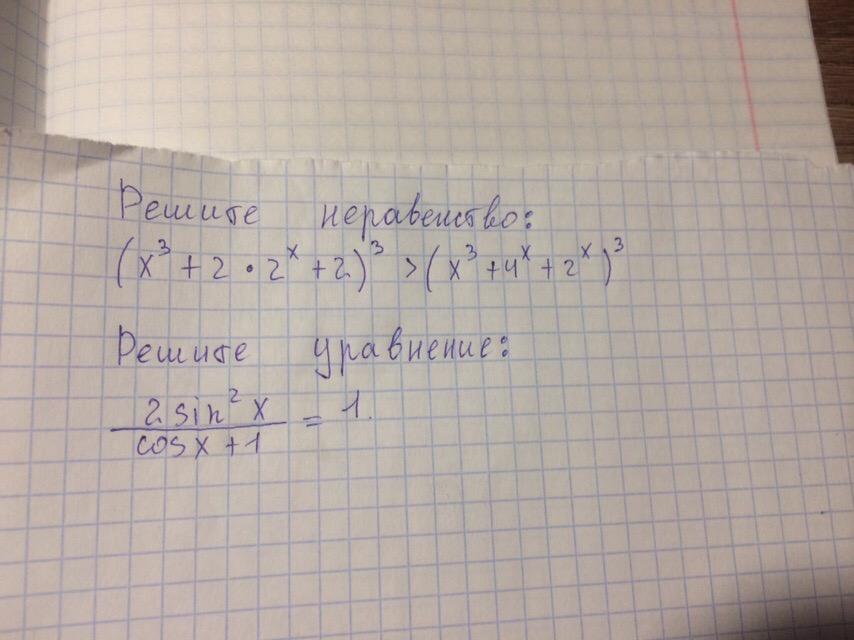 Решите неравенство:
(x³ + 2 · 2ˣ + 2)³ > (x³ + 4ˣ + 2ˣ)³
Решите уравнение:
2 sin² x
cos x + 1 = 1.